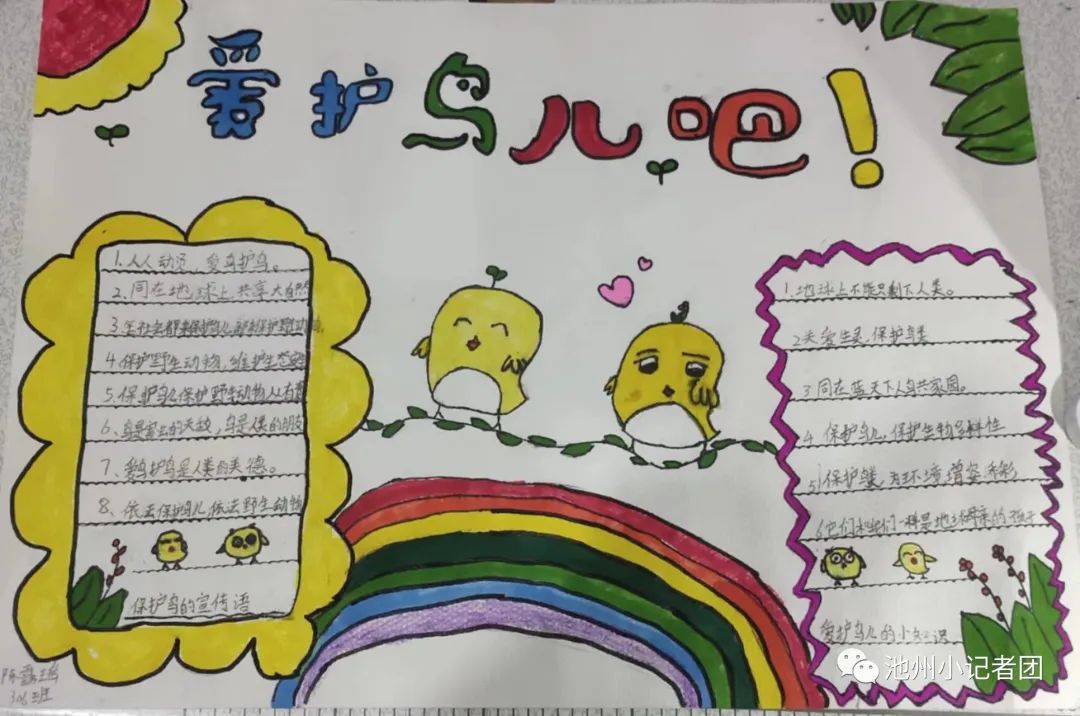 爱护鸟儿吧！
1.人人动员，爱鸟护鸟。
2.同在地球上共享大自然
3.全社会都来保护鸟儿，都来保护野生动物
4.保护野生动物，维护生态
5.保护鸟儿保护野生动物人人有责
6、鸟是害虫的天敌，鸟是人类的朋友
7、爱鸟护鸟是人类的美德。
8、依法保护鸟儿，依法野生动物
保护鸟的宣传语
1.地球上不能只剩下人类。
2关爱生灵，保护鸟类
3同在蓝天下人鸟共家园。
4 保护鸟儿，保护生物多样性
5保护鸟类，为环境增姿添彩
6他们和我们一样是地球母亲的孩子
爱护鸟儿的小知识
306班
池州小记者团